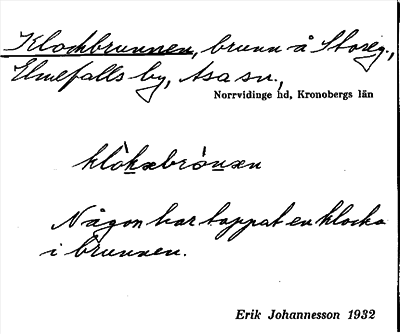 Klockbrunnen, brunn å Storeg.,
Elmefalls by, Asa sn.,
Norrvidinge hd, Kronobergs län
klòkæbrònæn
Någon har tappat en klocka
i brunnen.
Erik Johannesson 1932